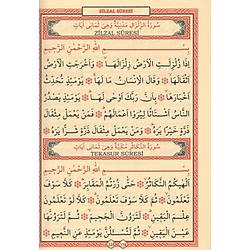 ZİLZAL SÛRESİ
سُورَةُ الزِّلْزَالِ مَدَنِيَّةٌ وَهِيَ ثَمَانِي آيَاتٍ
ZİLZAL SÛRESİ
بِسْمِ اللّٰهِ الرَّحْمٰنِ الرَّحِيمِ
اِذَا زُلْزِلَتِ الْاَرْضُ زِلْزَالَهَاۙ وَاَخْرَجَتِ الْاَرْضُ
اَثْقَالَهَاۙ وَقَالَ الْاِنْسَانُ مَا لَهَاۚ يَوْمَئِذٍ تُحَدِّثُ
اَخْبَارَهَاۙ بِاَنَّ رَبَّكَ اَوْحٰى لَهَاۜ يَوْمَئِذٍ يَصْدُرُ
النَّاسُ اَشْتَاتًا لِيُرَوْا اَعْمَالَهُمْۜ فَمَنْ يَعْمَلْ مِثْقَالَ
ذَرَّةٍ خَيْرًا يَرَهُۜ وَمَنْ يَعْمَلْ مِثْقَالَ ذَرَّةٍ شَرًّا يَرَهُ
سُورَةُ التَّكَاثُرِ مَكِّيَّةٌ وَهِيَ ثَمَانِي آيَاتٍ
TEKASUR SÛRESİ
بِسْمِ اللّٰهِ الرَّحْمٰنِ الرَّحِيمِ
اَلْهٰيكُمُ التَّكَاثُرُۙ حَتّٰى زُرْتُمُ الْمَقَابِرَۜ كَلَّا سَوْفَ
تَعْلَمُونَۙ ثُمَّ كَلَّا سَوْفَ تَعْلَمُونَۜ كَلَّا لَوْ تَعْلَمُونَ
عِلْمَ الْيَقِينِۜ لَتَرَوُنَّ الْجَحِيمَۙ ثُمَّ لَتَرَوُنَّهَا
عَيْنَ الْيَقِينِۙ ثُمَّ لَتُسْـَٔلُنَّ يَوْمَئِذٍ عَنِ النَّعِيمِ